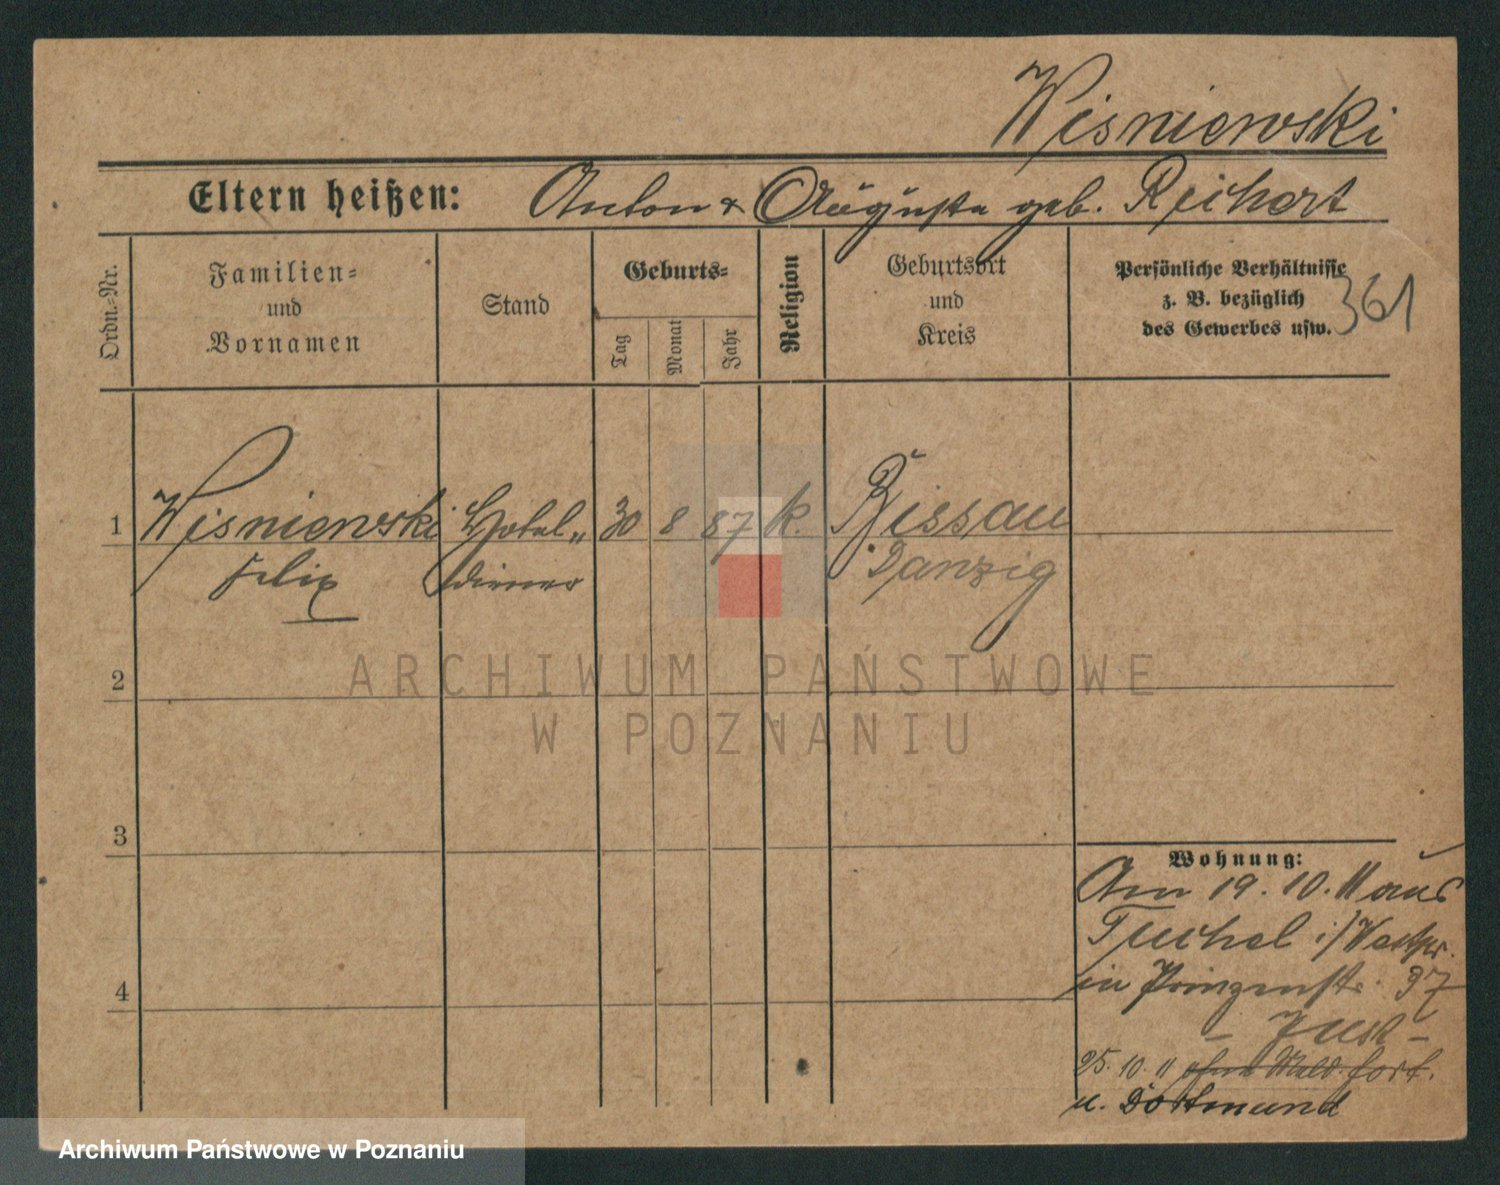 Wisniewski
Eltern heißen: Anton & Auguste geb. Reichert
Ordn.-Nr.
Familien-
und
Vornamen
Stand
Geburts-
Tag
Monat
Jahr
Religion
Geburtsort
und
Kreis
Persönliche Verhältnisse
z. B. bezüglich
des Gewerbes usw.
361
1 Wisniewski Hotel„ 30 8 87 k. Bissau
Felix diener Danzig
2
3
4
Wohnung:
Am 19. 10. 11 aus
Tuchel i/Westpr.
in Prinzenstr. 37
- Just -
25. 10. 11 ohne Meld. fort.
n. Dortmund
ARCHIWUM PAŃSTWOWE
W POZNANIU
Archiwum Państwowe w Poznaniu